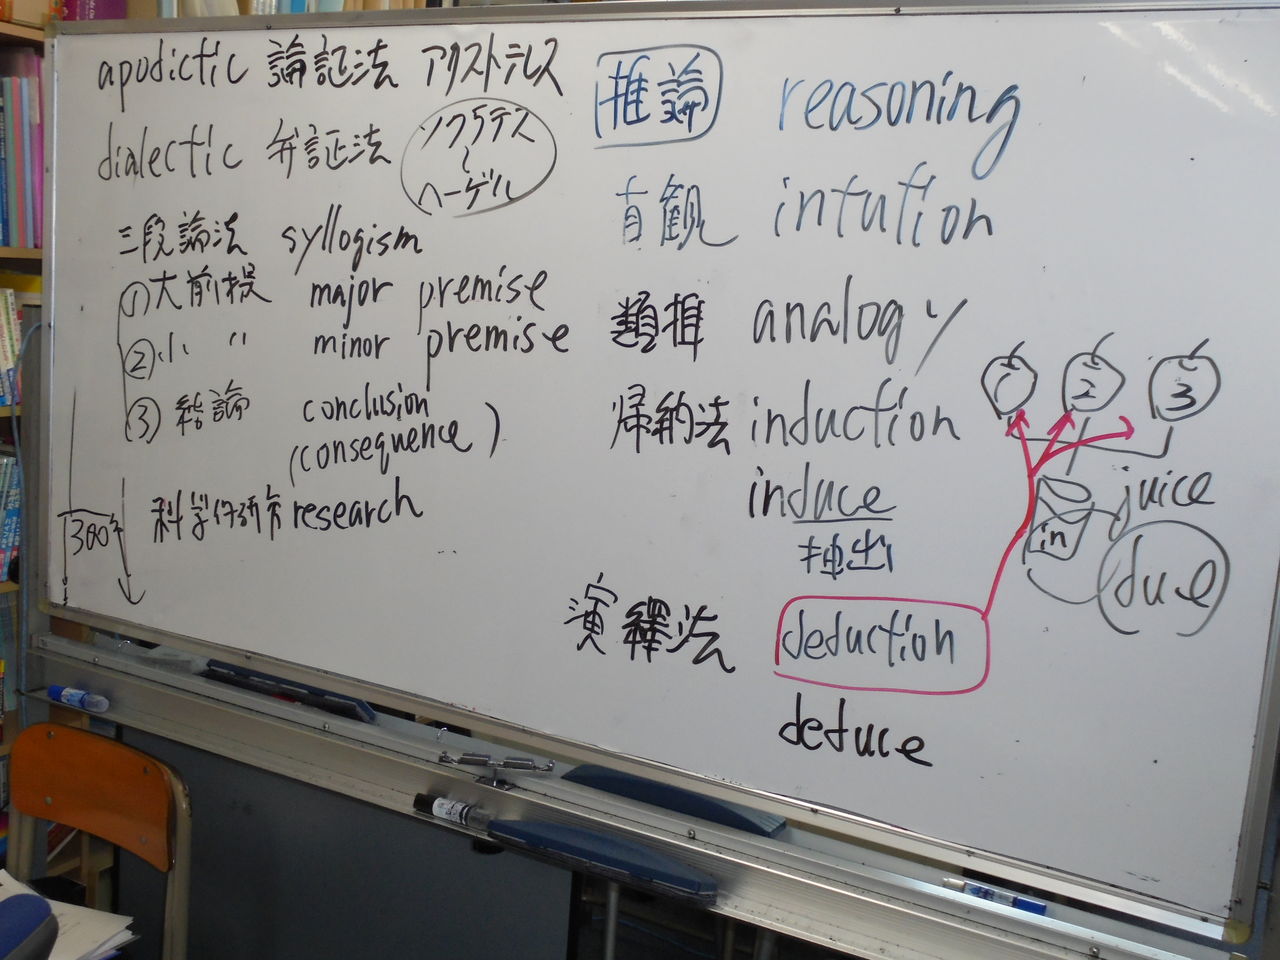 apodictic 論証法 アリストテレス
dialectic 弁証法 ソクラテス
〜
ヘーゲル
三段論法 syllogism
①大前提 major premise
②小 〃 minor premise
③結論 conclusion
(consequence)
科学的研究 research
300年
推論 reasoning
直観 intuition
類推 analogy
帰納法 induction
induce
抽出
1 2 3
juice
in
duce
演繹法 deduction
deduce